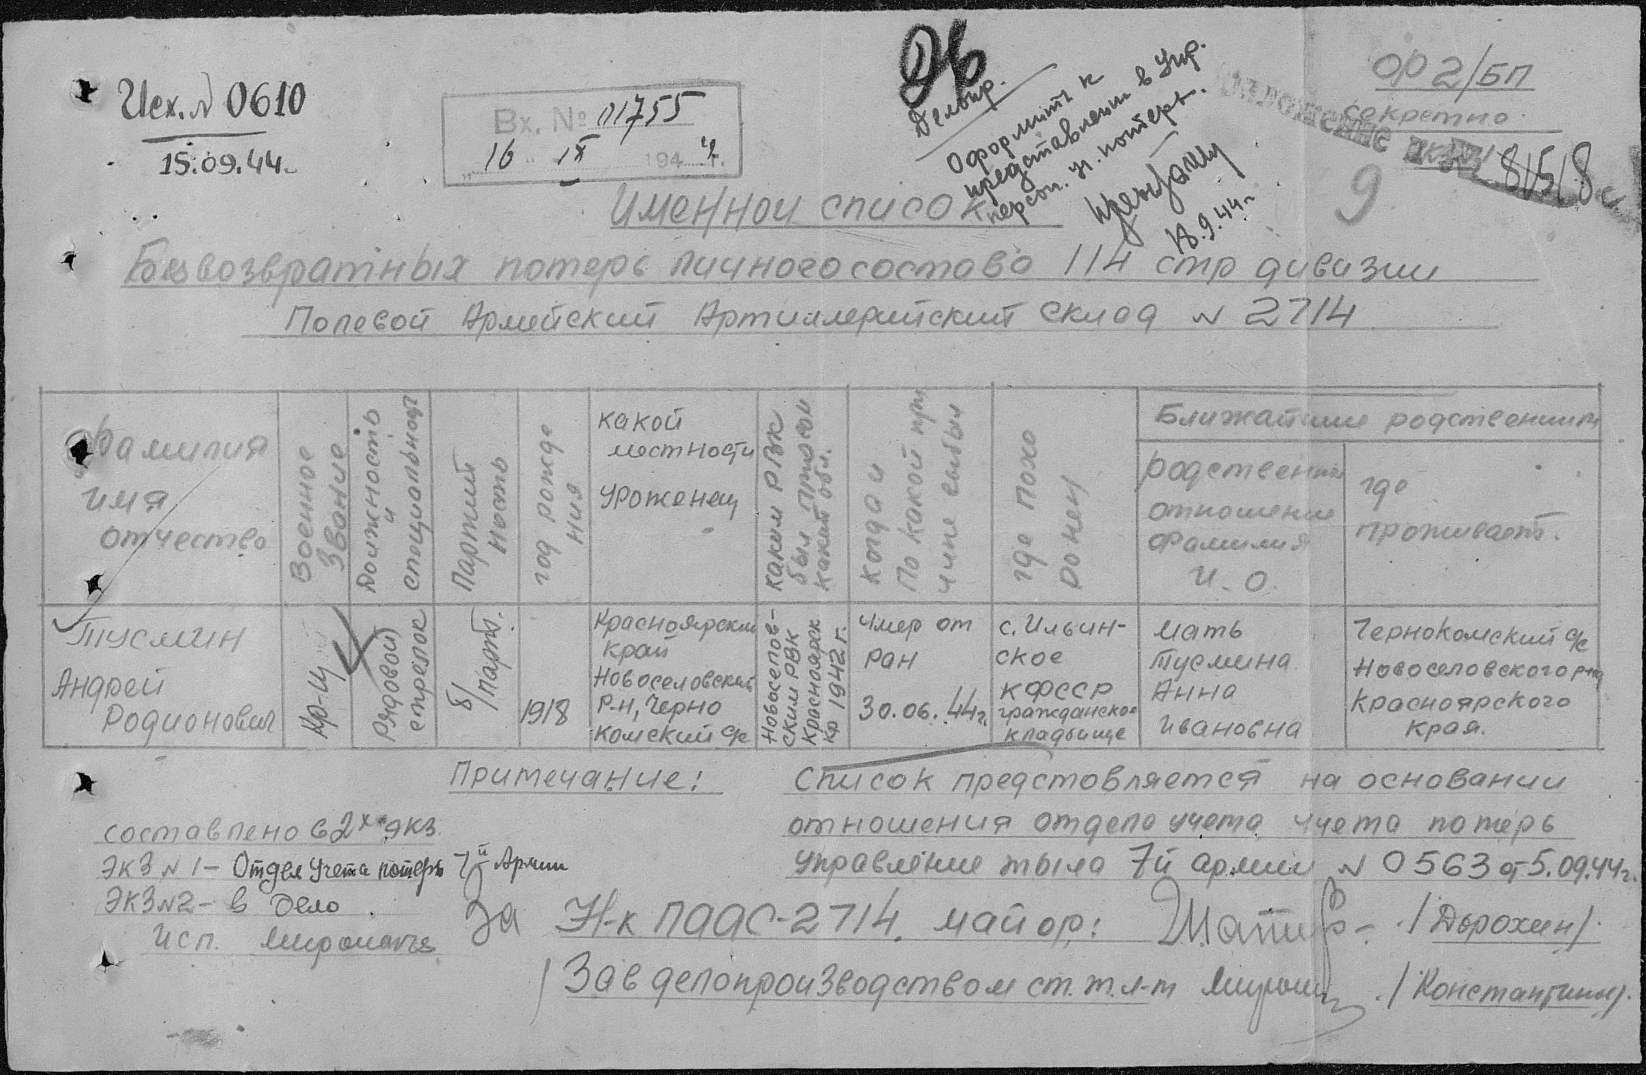 Исх. № 0610
15.09.44 г.
Вх. № 01755
16 IX 1944 г.
Оформить к
представлению в Упр.
персон. уч. потерь.
18.9.44 г.
ОР 2/БП
секретно
9
Именной список
Безвозвратных потерь личного состава 114 стр дивизии
Полевой Армейский Артиллерийский склад № 2714
Фамилия
имя
отчество
Военное
Звание
Должность
и
специальность
Партий
ность
год рожде
ния
какой
местности
уроженец
каким РВК
был призван
какой обл.
когда и
По какой при
чине выбыл
где похо
ронен
Ближайшие родственники
родственные
отношение
фамилия
И. О.
где
проживает.
Тусмин
Андрей
Родионович
Кр-ц
Рядовой
стрелок
б/
парт.
1918
Красноярский
край
Новоселовский
Р-н, Черно
Комский с/с
Новоселов-
ским РВК
Красноярск
кр 1942 г.
Умер от
ран
30.06.44 г.
с. Ильин-
ское
КФССР
гражданское
кладбище
мать
Тусмина
Анна
Ивановна
Чернокомский с/с
Новоселовского р-на
Красноярского
края.
Примечание:
Список предстовляется на основании
отношения отдела учета учета потерь
Управление тыла 7й армии № 0563 от 5.09.44 г.
составлено в 2х экз.
экз № 1 – Отдел Учета потерь 7й Армии
экз № 2 – в дело
Исп.
За Н-к ПААС-2714 майор: /Дорохин/.
/Зав делопроизводством ст. т. л-т /Константинов/.